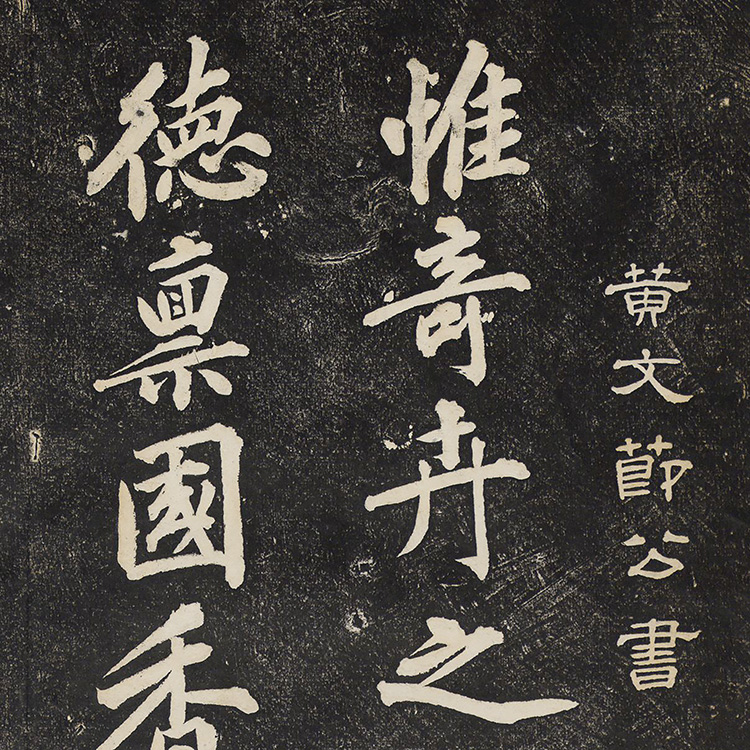 黄文節公書
惟奇卉之
德禀國香